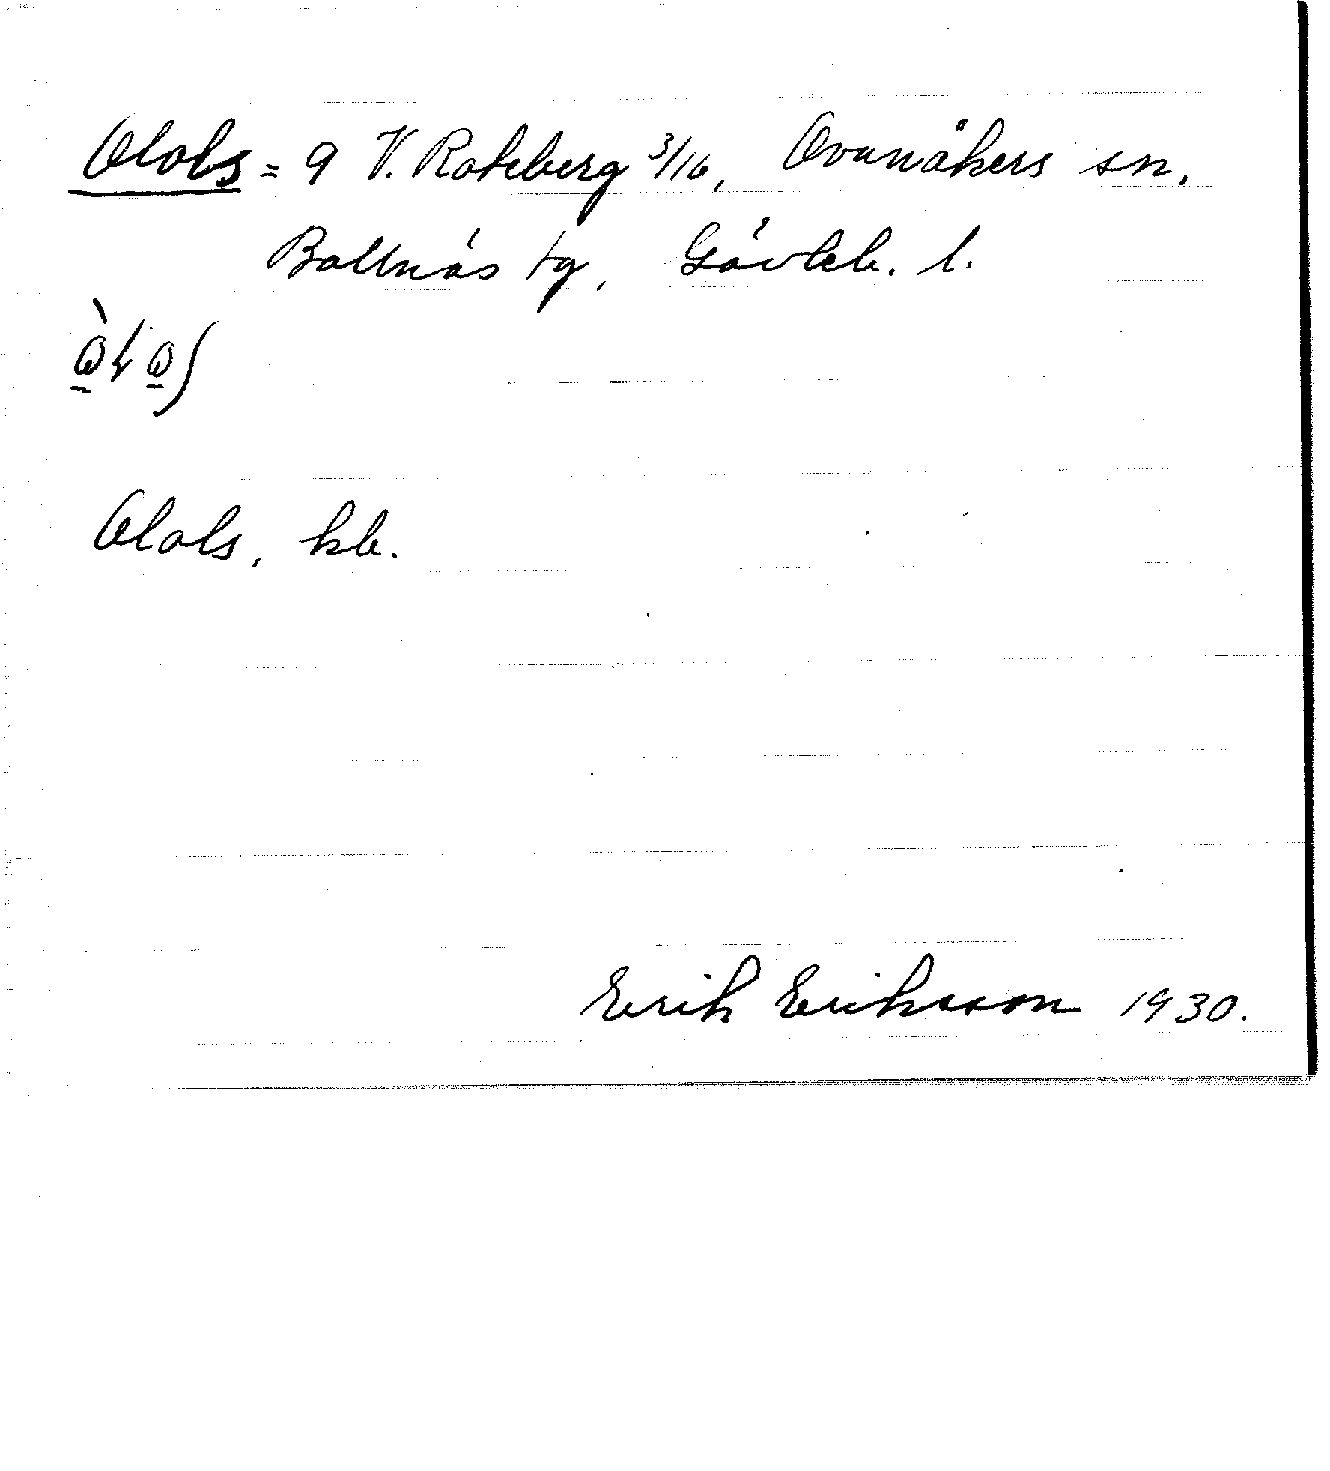 Olols = 9 V. Roteberg 3/16, Ovanåkers sn.
Bollnäs tg, Gävleb. l.
Olols, kb.
Erik Eriksson 1930.